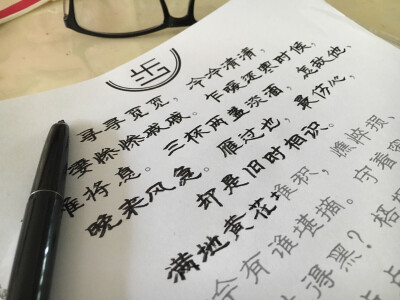 寻寻觅觅，冷冷清清，
凄惨惨戚戚。乍暖还寒时候，
难将息。三杯两盏淡酒，怎敌他、
晚来风急。雁过也，最伤心，
却是旧时相识。
满地黄花堆积，憔悴损，
今有谁堪摘。守着窗
得黑？梧桐